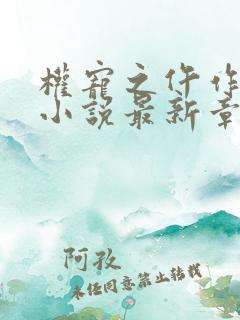 權寵之仵作
小說最新章
阿孜
未经同意禁止转载